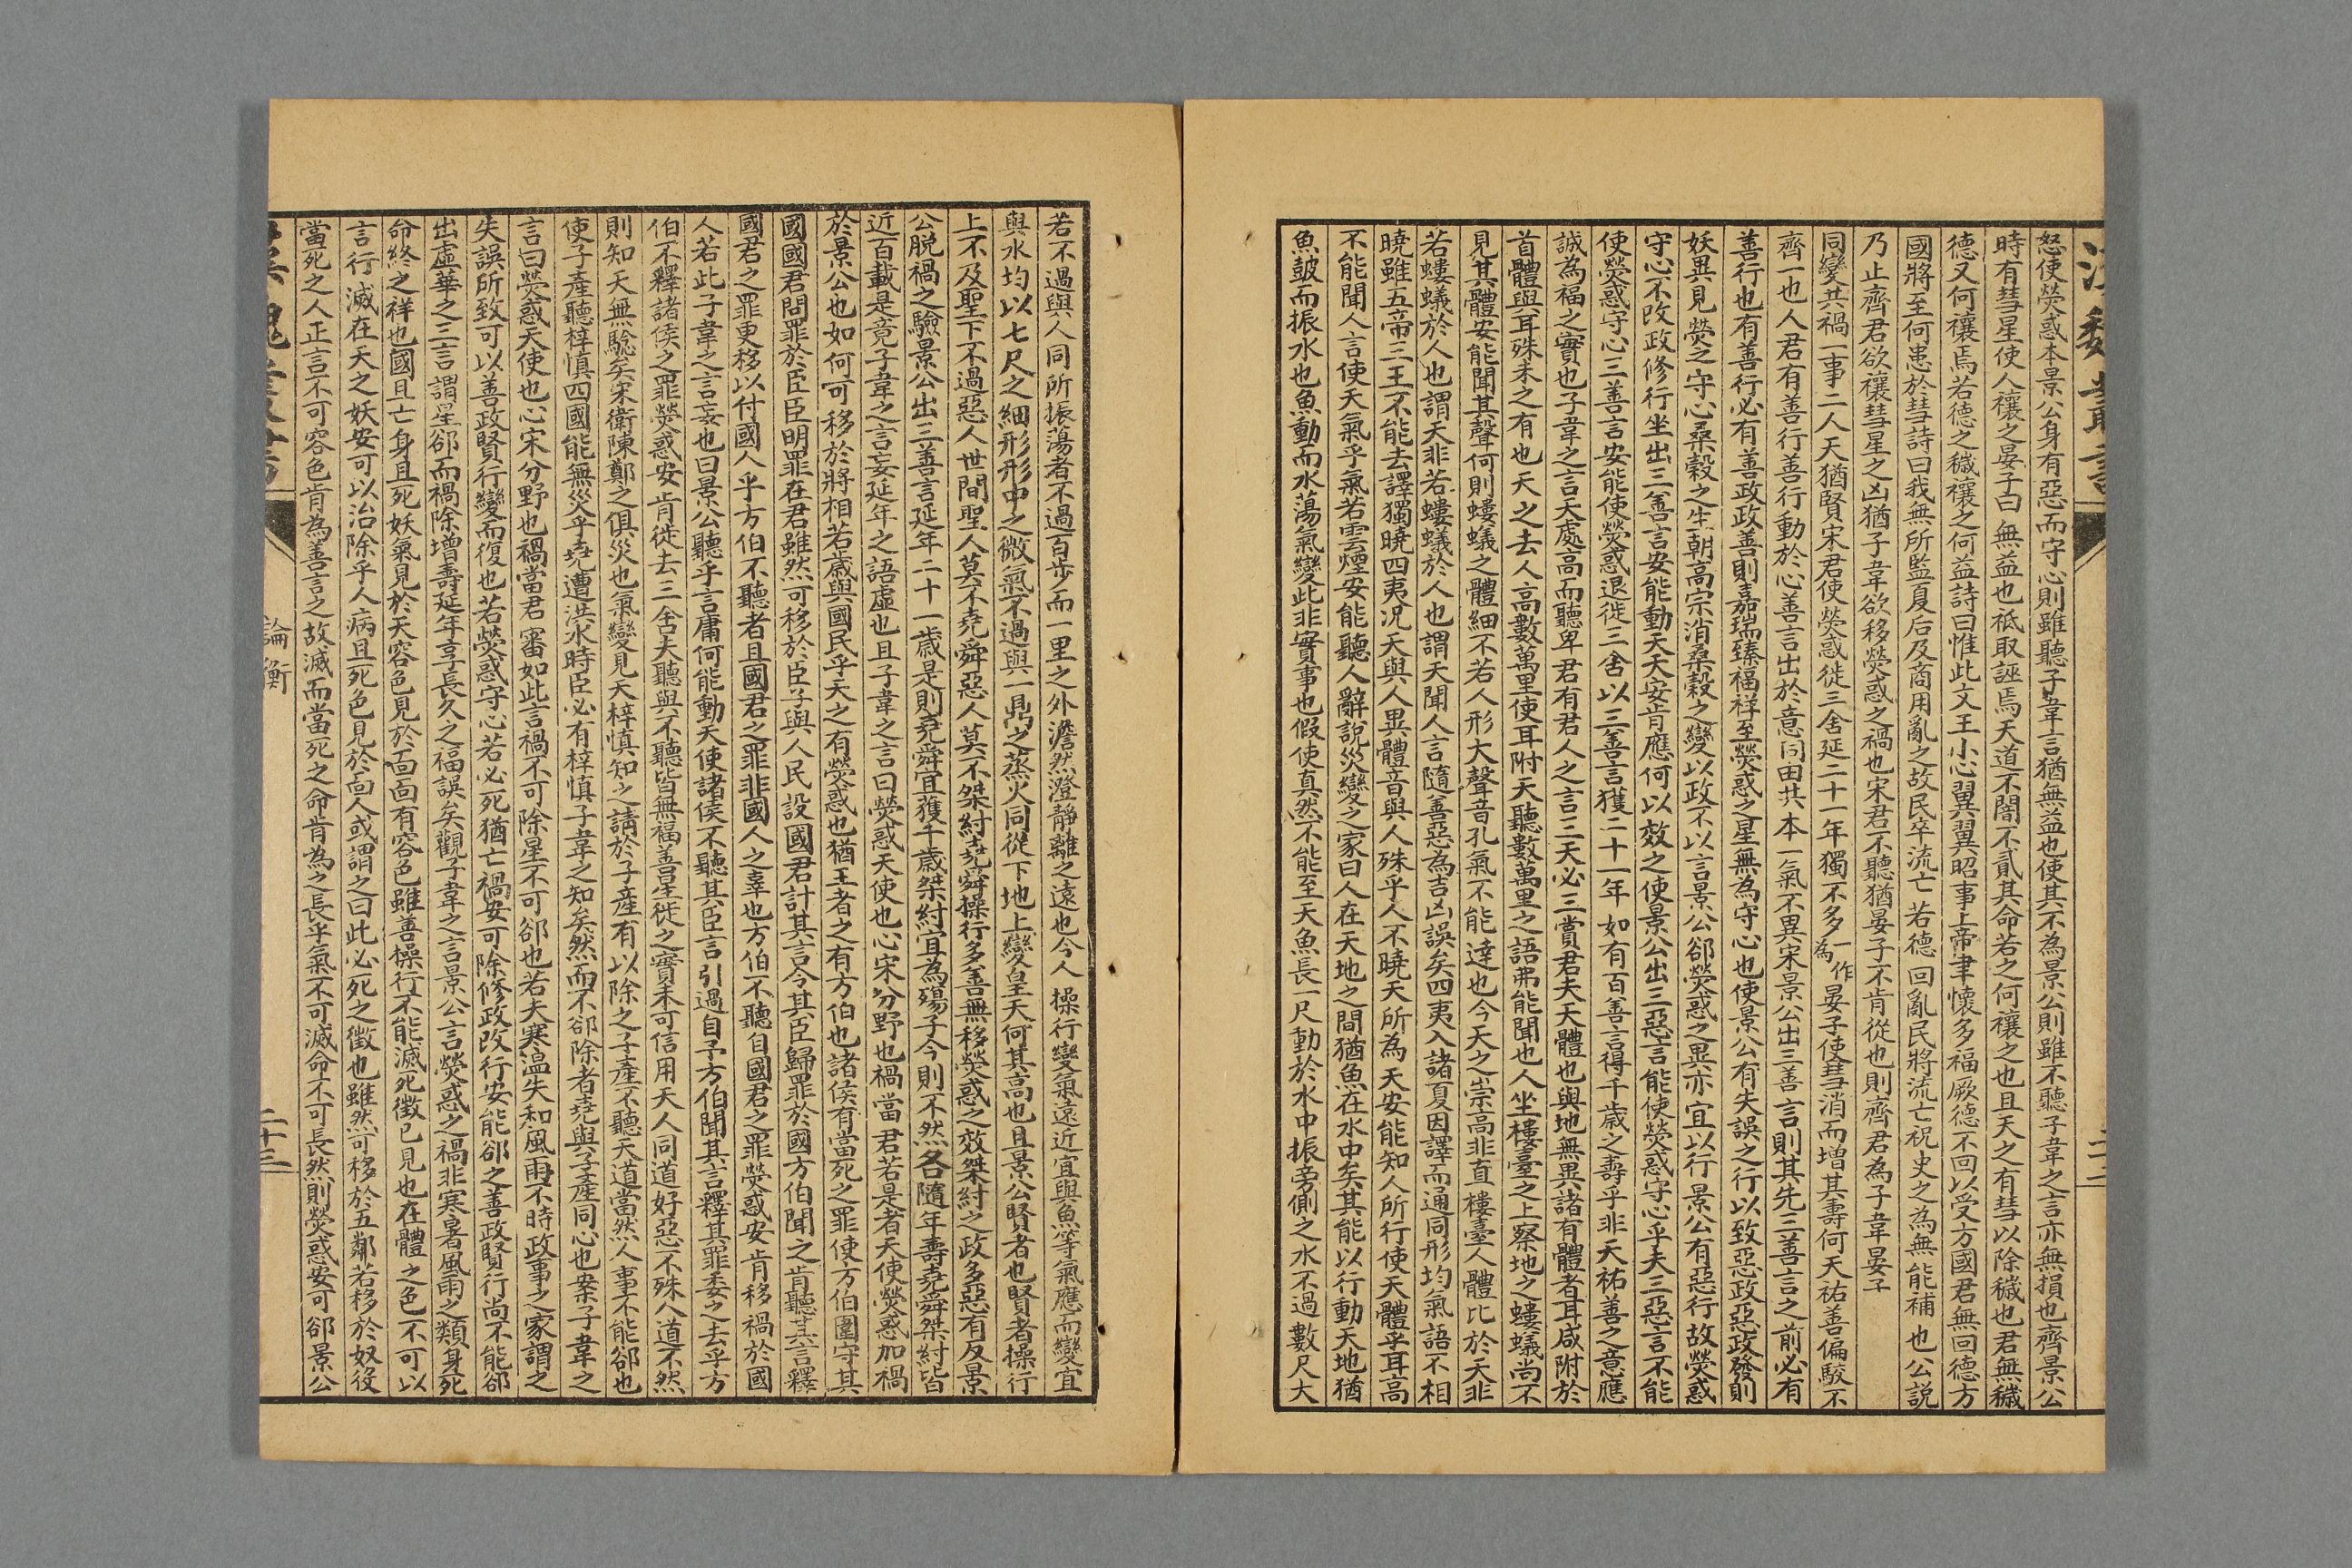 怒使熒惑本景公身有惡而守心則雖聽子韋言猶無益也使其不為景公則雖不聽子韋之言亦無損也齊景公
時有彗星使人禳之晏子曰無益也祗取誣焉天道不闇不貳其命若之何禳之也且天之有彗以除穢也君無穢
德又何禳焉若德之穢禳之何益詩曰惟此文王小心翼翼昭事上帝聿懷多福厥德不回以受方國君無回德方
國將至何患於彗詩曰我無所監夏后及商用亂之故民卒流亡若德回亂民將流亡祝史之為無能補也公說
乃止齊君欲禳彗星之凶猶子韋欲移熒惑之禍也宋君不聽猶晏子不肯從也則齊君為子韋晏子
同變共禍一事二人天猶賢宋君使熒惑徙三舍延二十一年獨不多一作為晏子使彗消而增其壽何天祐善偏駁不
齊一也人君有善行善行動於心善言出於意同由共本一氣不異宋景公出三善言則其先三善言之前必有
善行也有善行必有善政政善則嘉瑞臻福祥至熒惑之星無為守心也使景公有失誤之行以致惡政惡政發則
妖異見熒之守心桑穀之生朝高宗消桑穀之變以政不以言景公郤熒惑之異亦宜以行景公有惡行故熒惑
守心不改政修行坐出三善言安能動天天安肯應何以效之使景公出三惡言能使熒惑守心乎夫三惡言不能
使熒惑守心三善言安能使熒惑退徙三舍以三善言獲二十一年如有百善言得千歲之壽乎非天祐善之意應
誠為福之實也子韋之言天處高而聽卑君有君人之言三天必三賞君夫天體也與地無異諸有體者耳咸附於
首體與耳殊未之有也天之去人高數萬里使耳附天聽數萬里之語弗能聞也人坐樓臺之上察地之螻蟻尚不
見其體安能聞其聲何則螻蟻之體細不若人形大聲音孔氣不能達也今天之崇高非直樓臺人體比於天非
若螻蟻於人也謂天非若螻蟻於人也謂天聞人言隨善惡為吉凶誤矣四夷入諸夏因譯而通同形均氣語不相
曉雖五帝三王不能去譯獨曉四夷況天與人異體音與人殊乎人不曉天所為天安能知人所行使天體乎耳高
不能聞人言使天氣乎氣若雲煙安能聽人辭說災變之家曰人在天地之間猶魚在水中矣其能以行動天地猶
魚鼓而振水也魚動而水蕩氣變此非實事也假使真然不能至天魚長一尺動於水中振旁側之水不過數尺大
若不過與人同所振蕩者不過百步而一里之外澹然澄靜離之遠也今人操行變氣遠近宜與魚等氣應而變宜
與水均以七尺之細形形中之微氣不過與一鼎之蒸火同從下地上變皇天何其高也且景公賢者也賢者操行
上不及聖下不過惡人世間聖人莫不堯舜惡人莫不桀紂堯舜操行多善無移熒惑之效桀紂之政多惡有反景
公脫禍之驗景公出三善言延年二十一歲是則堯舜宜獲千歲桀紂宜為殤子今則不然各隨年壽堯舜桀紂皆
近百載是竟子韋之言妄延年之語虛也且子韋之言曰熒惑天使也心宋分野也禍當君若是者天使熒惑加禍
於景公也如何可移於將相若歲與國民乎天之有熒惑也猶王者之有方伯也諸侯有當死之罪使方伯圍守其
國國君問罪於臣臣明罪在君雖然可移於臣子與人民設國君計其言令其臣歸罪於國方伯聞之肯聽其言釋
國君之罪更移以付國人乎方伯不聽者且國君之罪非國人之辜也方伯不聽自國君之罪熒惑安肯移禍於國
人若此子韋之言妄也曰景公聽乎言庸何能動天使諸侯不聽其臣言引過自予方伯聞其言釋其罪委之去乎方
伯不釋諸侯之罪熒惑安肯徙去三舍夫聽與不聽皆無福善星徙之實未可信用天人同道好惡不殊人道不然
則知天無驗矣宋衛陳鄭之俱災也氣變見天梓慎知之請於子產有以除之子產不聽天道當然人事不能郤也
使子產聽梓慎四國能無災乎堯遭洪水時臣必有梓慎子韋之知矣然而不郤除者堯與子產同心也案子韋之
言曰熒惑天使也心宋分野也禍當君審如此言禍不可除星不可郤也若夫寒溫失和風雨不時政事之家謂之
失誤所致可以善政賢行變而復也若熒惑守心若必死猶亡禍安可除修政改行安能郤之善政賢行尚不能郤
出虛華之三言謂星郤而禍除增壽延年享長久之福誤矣觀子韋之言景公言熒惑之禍非寒暑風雨之類身死
命終之祥也國且亡身且死妖氣見於天容色見於面面有容色雖善操行不能滅死徵已見也在體之色不可以
言行滅在天之妖安可以治除乎人病且死色見於面人或謂之曰此必死之徵也雖然可移於五鄰若移於奴役
當死之人正言不可容色肯為善言之故滅而當死之命肯為之長乎氣不可滅命不可長然則熒惑安可郤景公
論衡
二十三